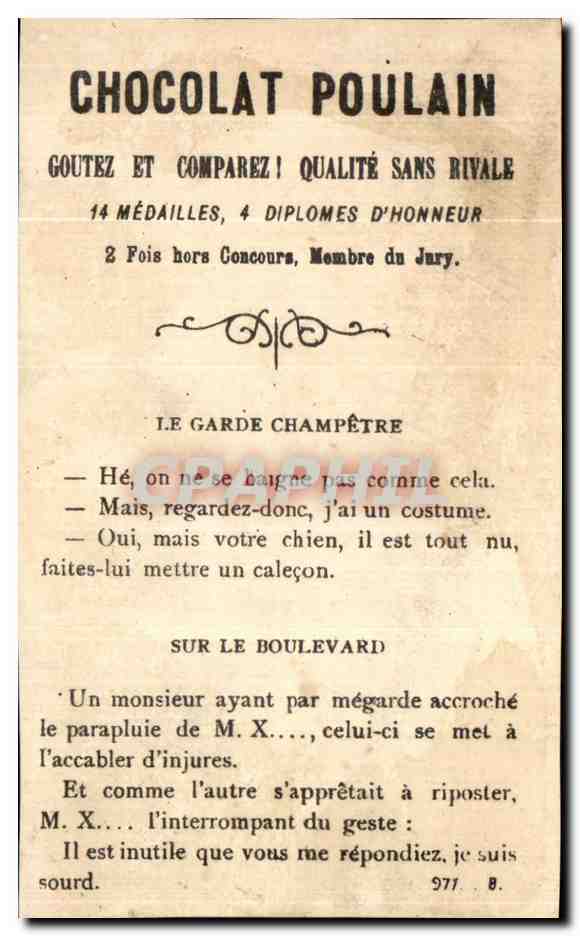 CHOCOLAT POULAIN
GOUTEZ ET COMPAREZ! QUALITÉ SANS RIVALE
14 MÉDAILLES, 4 DIPLOMES D'HONNEUR
2 Fois hors Concours, Membre du Jury.
LE GARDE CHAMPÊTRE
— Hé, on ne se baigne pas comme cela.
CPAPHIL
— Mais, regardez-donc, j'ai un costume.
— Oui, mais votre chien, il est tout nu,
faites-lui mettre un caleçon.
SUR LE BOULEVARD
Un monsieur ayant par mégarde accroché
le parapluie de M. X...., celui-ci se met à
l'accabler d'injures.
Et comme l'autre s'apprêtait à riposter,
M. X.... l'interrompant du geste :
Il est inutile que vous me répondiez, je suis
sourd. 977 . . 8.